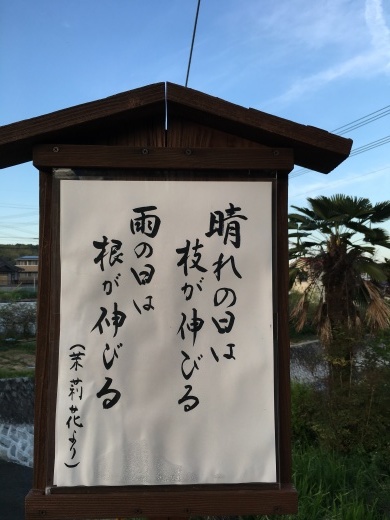 晴れの日は
枝が伸びる
雨の日は
根が伸びる
(茉莉花より)